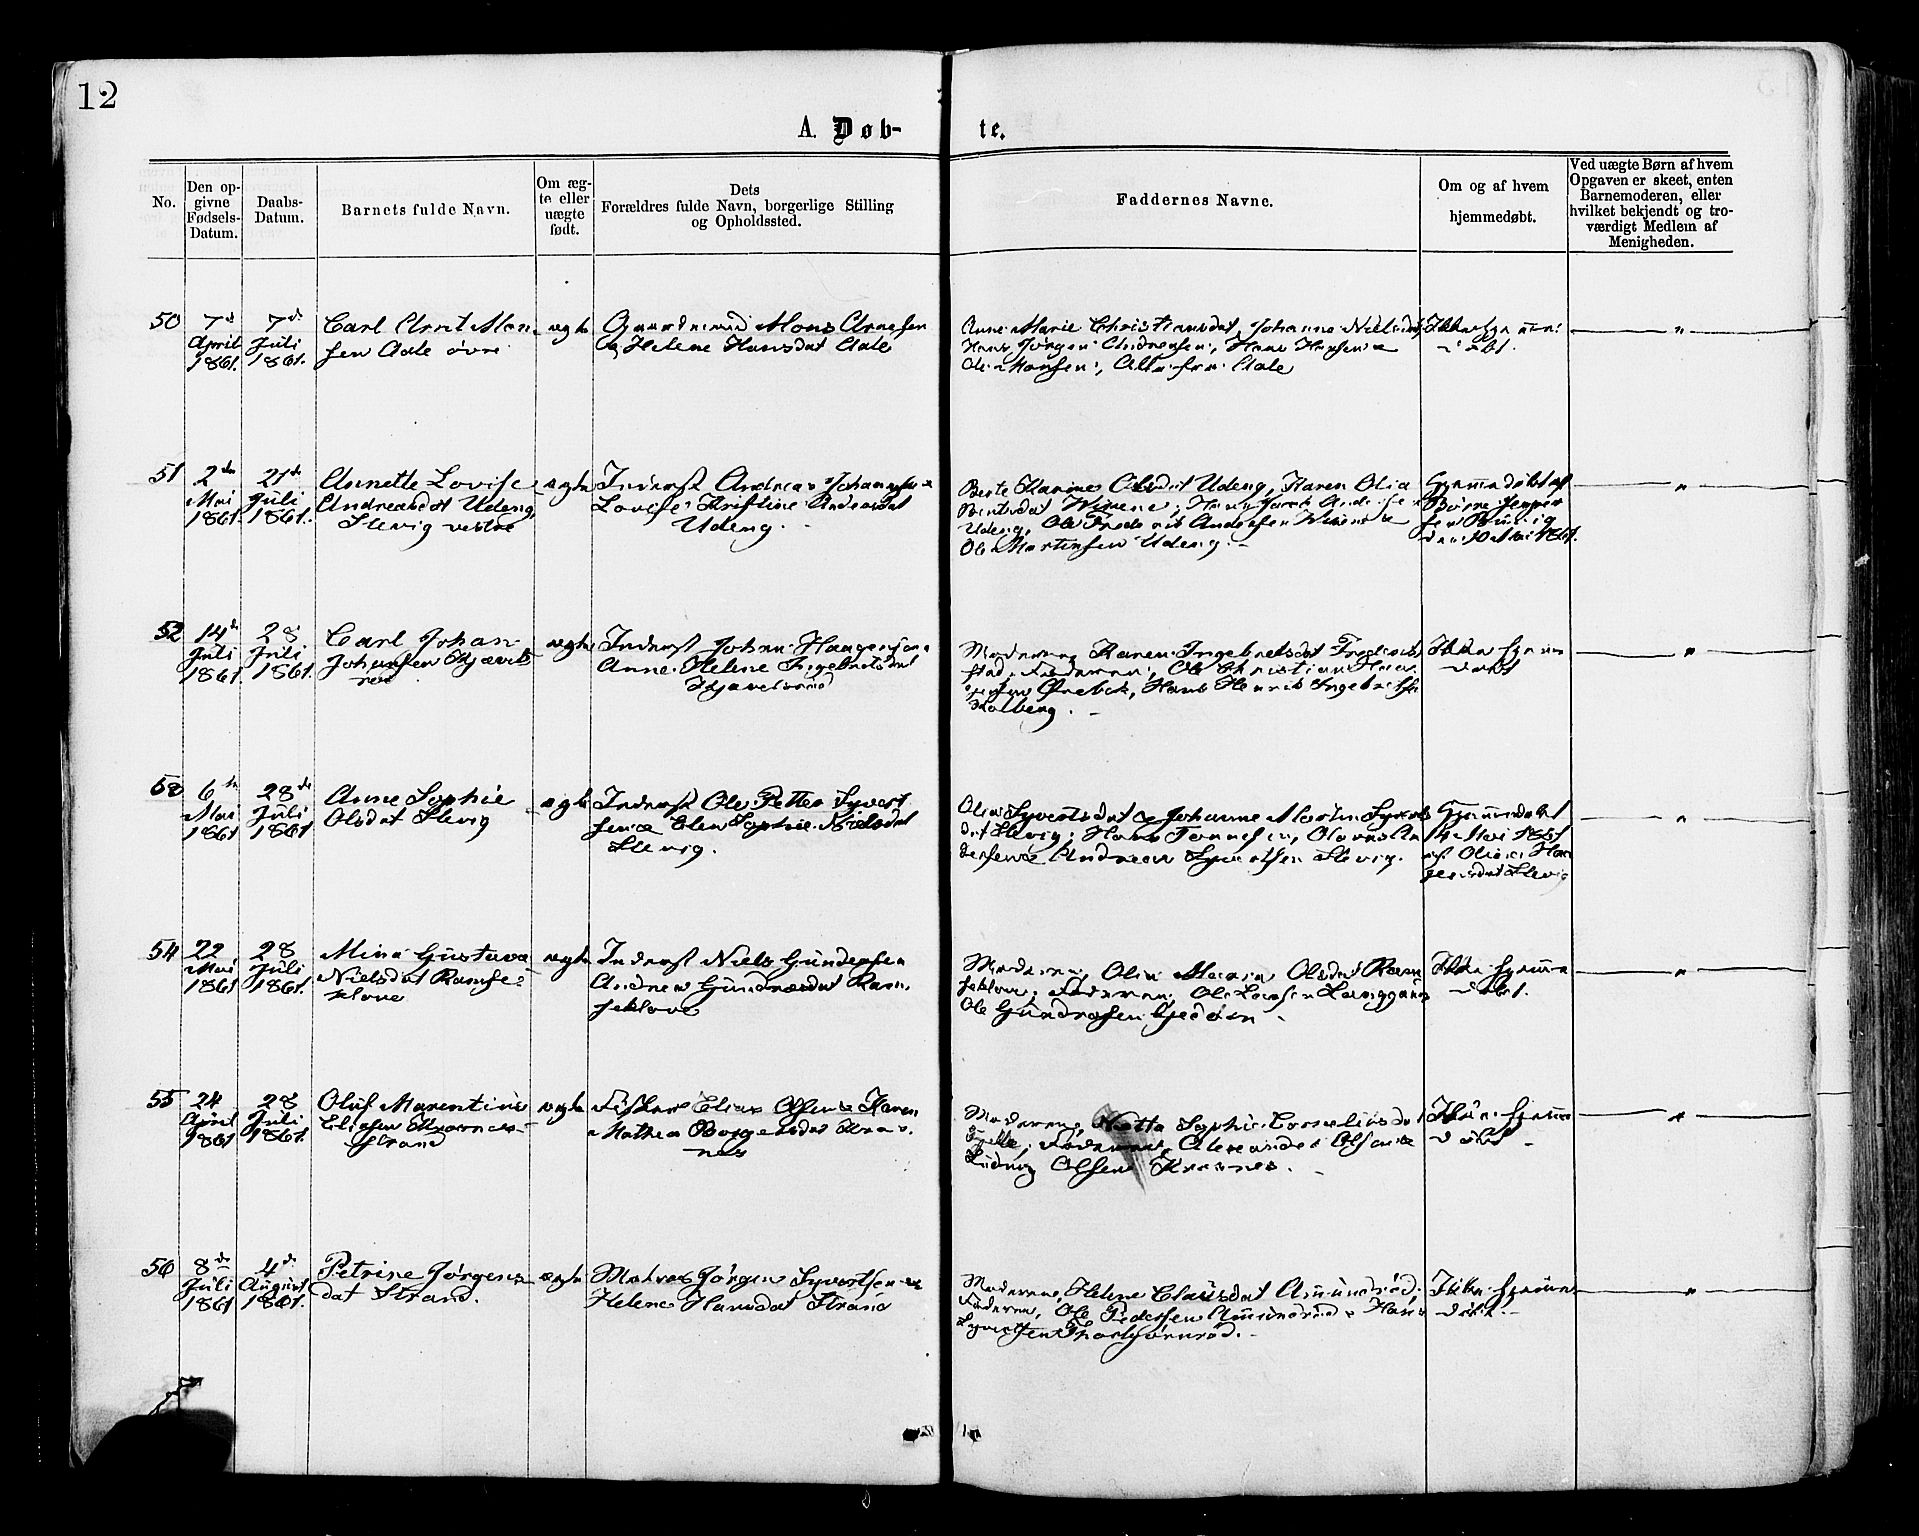 12
A. Døb-
te.
No.
Den op-
givne
Fødsels-
Datum.
Daabs-
Datum.
Barnets fulde Navn.
Om æg-
te eller
uægte
født.
Dets
Forældres fulde Navn, borgerlige Stilling
og Opholdssted.
Faddernes Navne.
Om og af hvem
hjemmedøbt.
Ved uægte Børn af hvem
Opgaven er skeet, enten
Barnemoderen, eller
hvilket bekjendt og tro-
værdigt Medlem af
Menigheden.
50
7de
April
1861.
7de
Juli
1861.
Carl Arnt Mon
sen Aale øvre
ægte
Gaardmand Mons Arnesen
og Helene Hansdat Aale
Anne Marie Christiansdat, Johanne Nielsdat
Hans Jørgen Andresen, Hans Hansen &
Ole Monsen, Alle fra Aale
Ikke hjemme
døbt.
"
51
2den
Mai
1861.
21de
Juli
1861.
Annette Lovise
Andreasdat Udeng,
Slevig vestre
ægte
Inderst Andreas Johannesen &
Lovise Kristine Andersdat
Udeng.
Berte Karine Olsdat Udeng, Karen Olia
Udeng, Ole Andersen
Ole Martinsen Udeng.
Hjemmedøbt af
den 10 Mai 1861.
"
52
14de
Juli
1861.
28
Juli
1861.
Carl Johan
Johansen Kjævels
rød
ægte
Inderst Johan
Anne Helene Ingebretsdat
Kjævelsrød
Moderen, Karen Ingebretsdat Frederik
stad, Faderen, Ole Christian
Ørebek, Hans Henrik Ingebretsen
Kolberg.
Ikke hjemme
døbt
"
53
6te
Mai
1861
28de
Juli
1861
Anne Sophie
Olsdat Slevig
ægte
Inderst Ole Petter Syvert
sen & Elen Sophie Nielsdat
Slevig.
Olia Syvertsdat & Johanne Syverts
dat Slevig, Hans Tønnesen,
dersen & Andreas Syvertsen Slevig.
Hjemmedøbt
14 Mai 1861
af
Slevig
"
54
22
Mai
1861
28
Juli
1861.
Mina Gustava
Nielsdat Ramse
klove
ægte
Inderst Niels Gundersen
Andrea Ram
seklove
Moderen, Olia Maria Olsdat Ram
seklove, Faderen, Ole
Ole
Ikke hjemme
døbt.
"
55
24
April
1861
28
Juli
1861.
Oluf Marentius
Eliasen
strand
ægte
Fisker Elias Olsen & Karen
Mathea
næs
Moderen, Sophie Corneliusdat
Faderen, Alexander Olsen &
Ludvig Olsen
Ikke hjemme
døbt
"
56
8de
Juli
1861
4de
August
1861.
Petrine Jørgens
dat Strand.
ægte
Matros Jørgen Syvertsen &
Helene Hansdat Strand
Moderen, Helene Clausdat Amundrød,
Faderen, Ole Pedersen Amundrød & Hans
Syvertsen Thorbjørnrød.
Ikke hjemme
døbt.
"